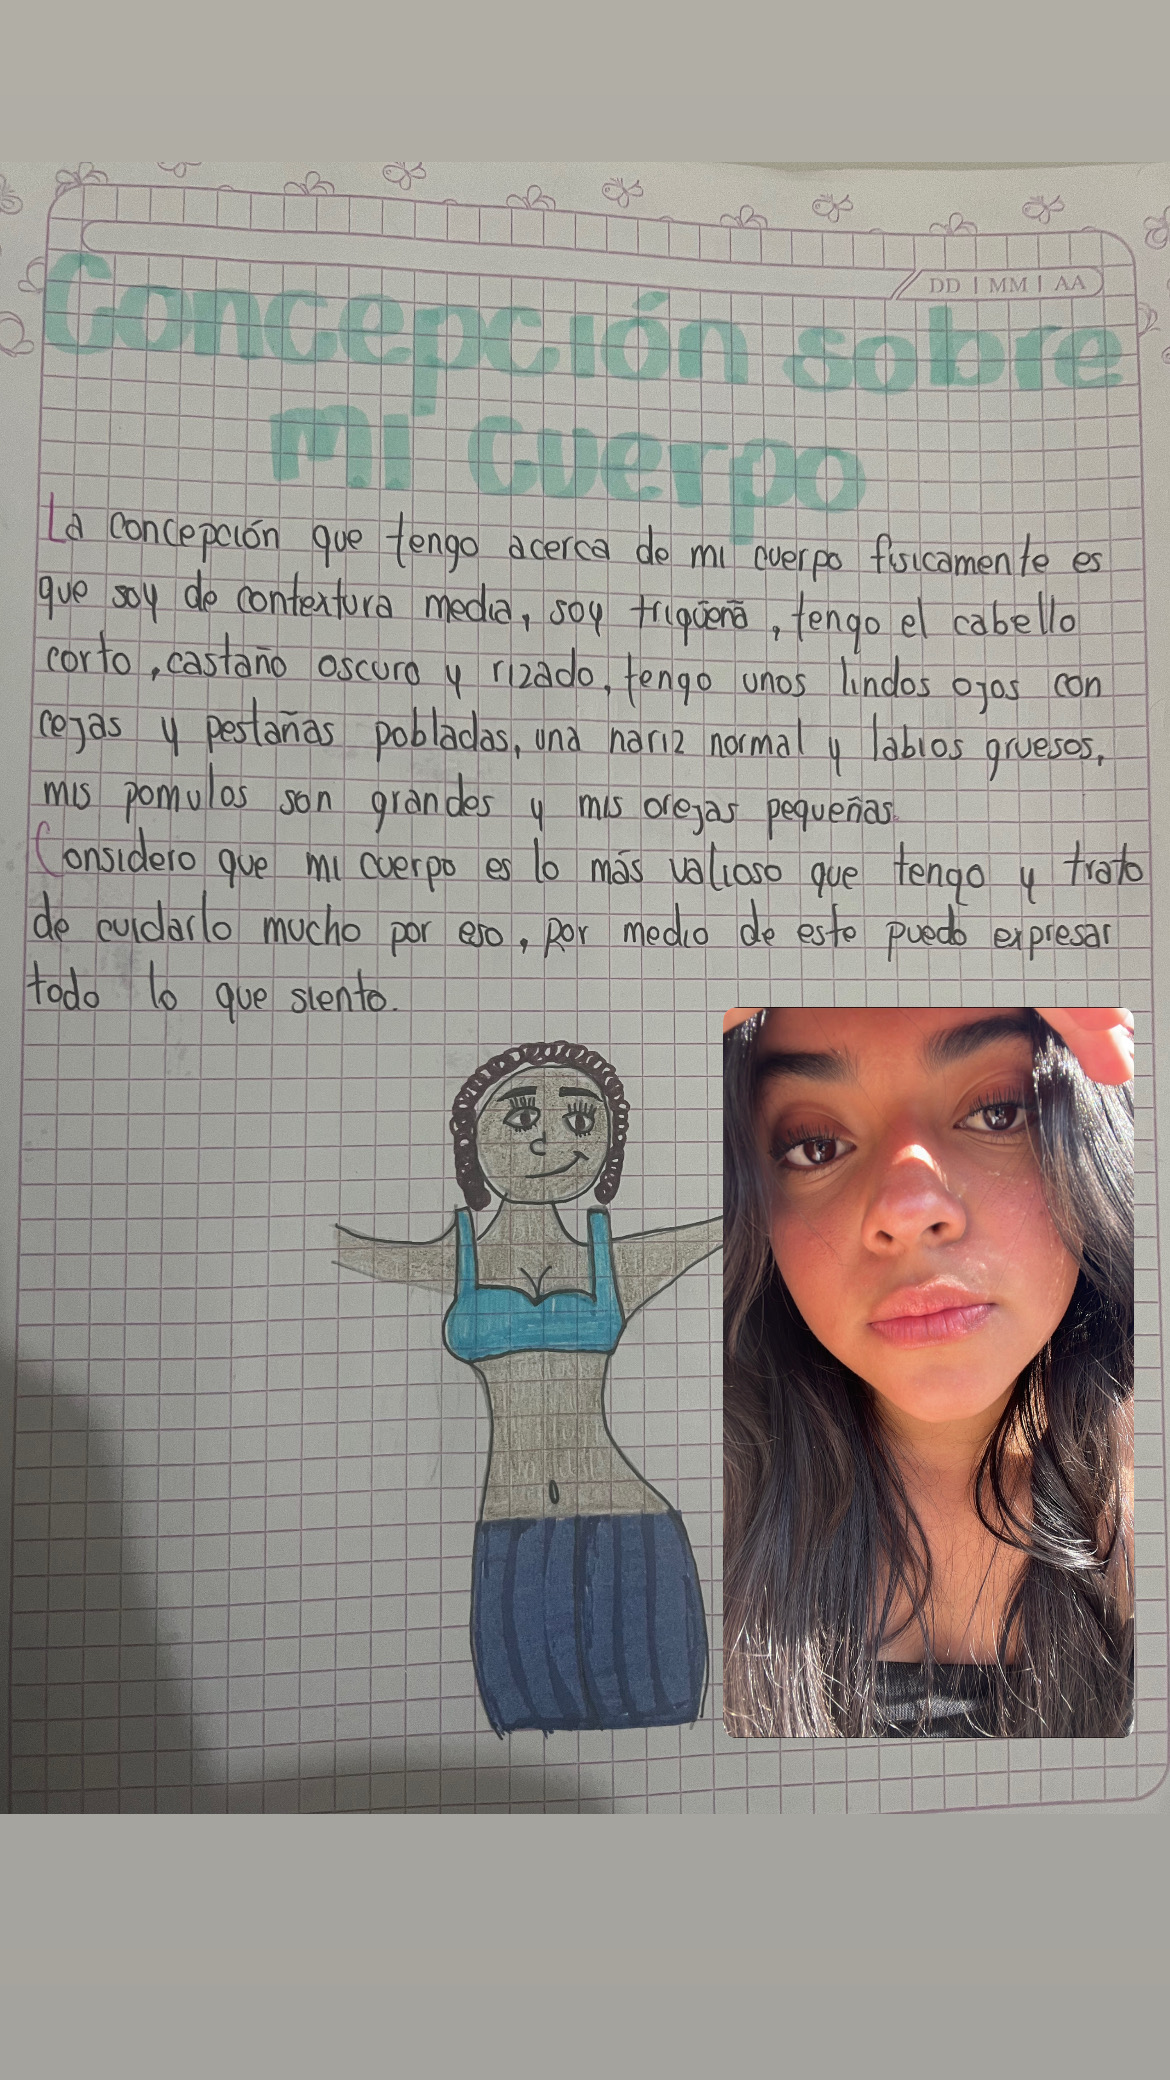 DD | MM | AA
Concepción sobre
mi cuerpo
La concepción que tengo acerca de mi cuerpo fisicamente es
que soy de contextura media, soy trigueña, tengo el cabello
corto, castaño oscuro y rizado, tengo unos lindos ojos con
cejas y pestañas pobladas, una nariz normal y labios gruesos,
mis pomulos son grandes y mis orejas pequeñas.
Considero que mi cuerpo es lo más valioso que tengo y trato
de cuidarlo mucho por eso, por medio de este puedo expresar
todo lo que siento.